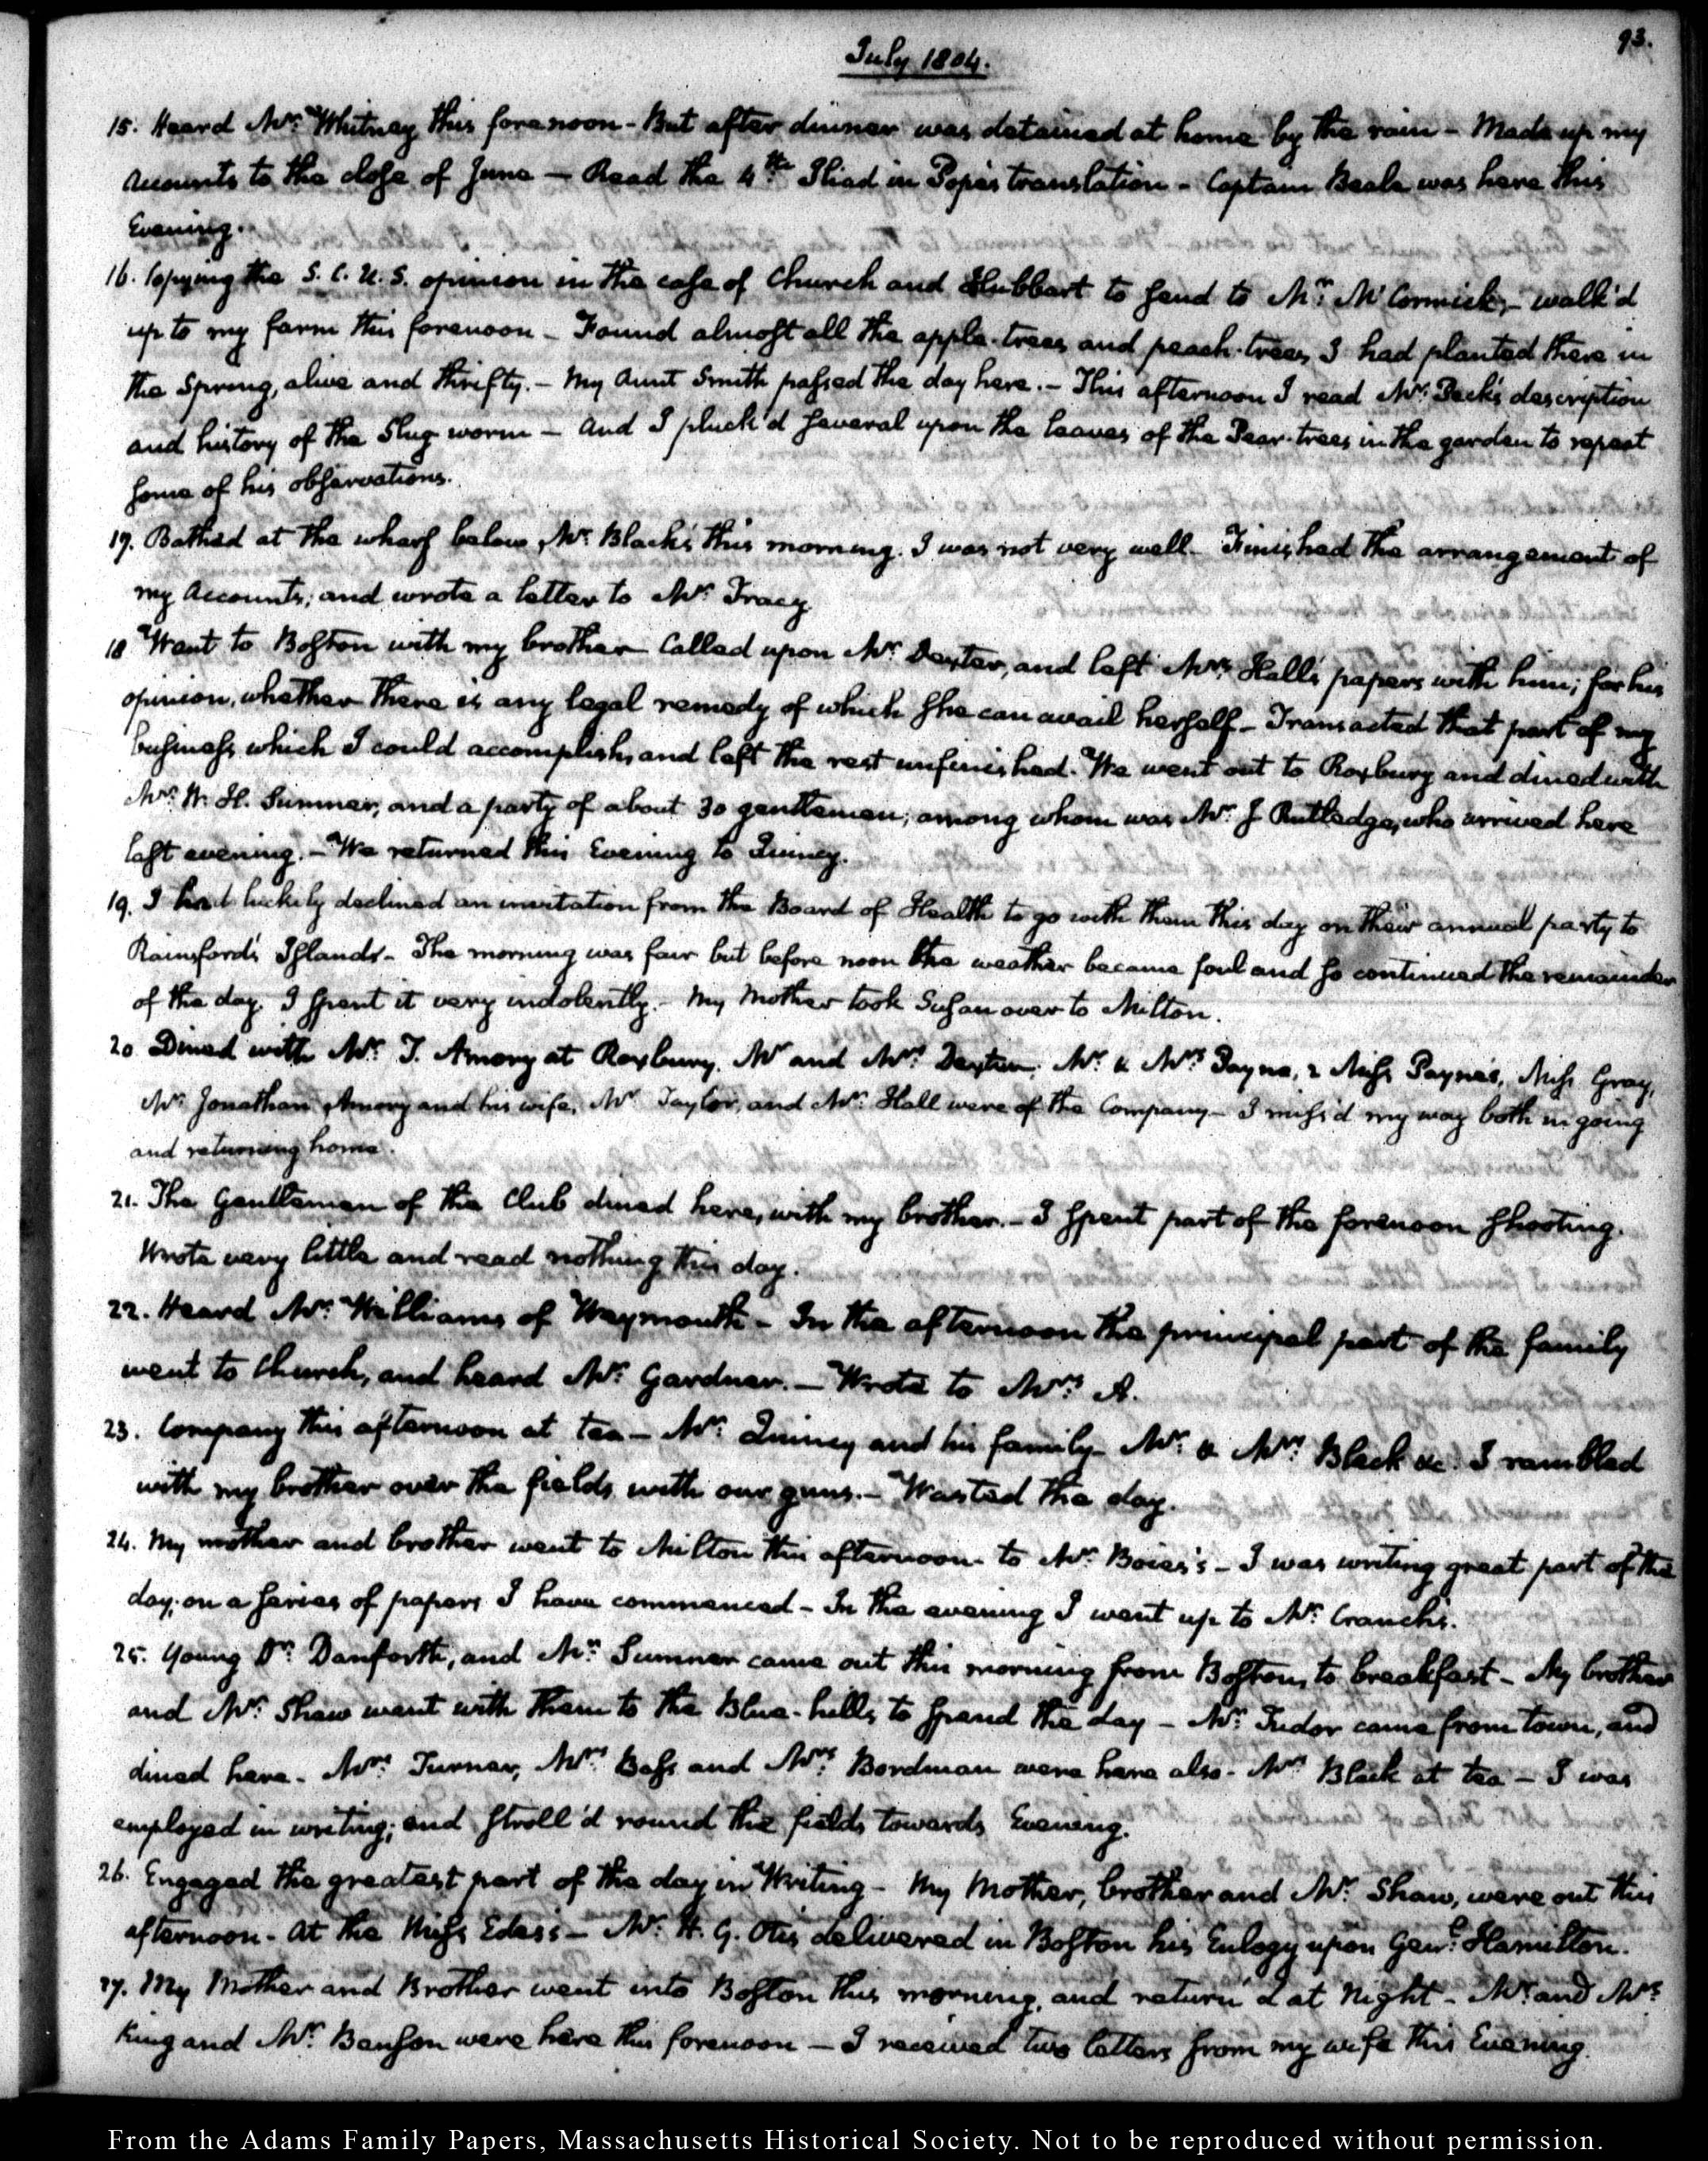 93.
July 1804.
15. Heard Mr: Whitney this forenoon - But after dinner was detained at home by the rain - Made up my
Accounts to the close of June — Read the 4th Iliad in Pope's translation - Captain Beale was here this
Evening.
16. Copying the S. C. U. S. opinion in the case of Church and Hubbart to send to Mr: McCormick, - walk'd
up to my farm this forenoon - Found almost all the apple-trees and peach-trees, I had planted there in
the Spring, alive and thrifty. - My Aunt Smith passed the day here. - This afternoon I read Mr: Peck's description
and history of the Slug worm — And I pluck'd several upon the leaves of the Pear-trees in the garden to repeat
some of his observations.
17. Bathed at the wharf below Mr: Black's this morning. I was not very well - Finished the arrangement of
my Accounts; and wrote a letter to Mr: Tracy
18 Went to Boston with my brother - Called upon Mr: Dexter, and left Mrs: Hall's papers with him; for his
opinion, whether there is any legal remedy of which she can avail herself - Transacted that part of my
business which I could accomplish, and left the rest unfinished. We went out to Roxbury and dined with
Mr: W. H. Sumner, and a party of about 30 gentlemen; among whom was Mr: J Rutledge, who arrived here
last evening. - We returned this Evening to Quincy.
19. I had luckily declined an invitation from the Board of Health to go with them this day on their annual party to
Rainsford's Island. - The morning was fair but before noon the weather became foul and so continued the remainder
of the day. I spent it very indolently. - My Mother took Susan over to Milton.
20. Dined with Mr: T. Amory at Roxbury. Mr and Mrs: Dexter, Mr: & Mrs Payne, 2 Miss Payne's, Miss Gray,
Mr: Jonathan Amory and his wife, Mr: Taylor, and Mr: Hall were of the Company - I miss'd my way both in going
and returning home.
21. The Gentlemen of the Club dined here, with my brother. - I spent part of the forenoon shooting.
Wrote very little and read nothing this day.
22. Heard Mr: Williams of Weymouth - In the afternoon the principal part of the family
went to Church, and heard Mr: Gardner. — Wrote to Mrs: A.
23. Company this afternoon at tea - Mr: Quincy and his family - Mr: & Mrs: Black &c. I rambled
with my brother over the fields with our guns. - Wasted the day.
24. My mother and brother went to Milton this afternoon to Mr: Boies's - I was writing great part of the
day, on a series of papers I have commenced - In the evening I went up to Mr: Cranch's.
25. Young Dr: Danforth, and Mr: Sumner came out this morning from Boston, to breakfast - My brother
and Mr: Shaw went with them to the Blue-hills, to spend the day - Mr: Tudor came from town, and
dined here. Mrs: Turner, Mrs: Bass and Mrs: Bordman were here also - Mrs Black at tea - I was
employed in writing; and stroll'd round the fields towards Evening.
26. Engaged the greatest part of the day in Writing - My Mother, brother and Mr: Shaw, were out this
afternoon - At the Miss Edes's - Mr: H. G. Otis delivered in Boston his Eulogy upon Genl: Hamilton.
27. My Mother and Brother went into Boston this morning, and return'd at Night - Mr: and Mrs:
King and Mr: Benson were here this forenoon — I received two letters from my wife this Evening.
From the Adams Family Papers, Massachusetts Historical Society. Not to be reproduced without permission.